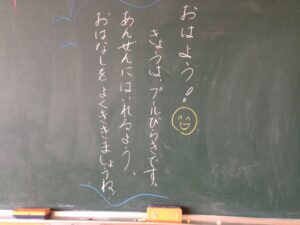 おはよう!
きょうは、プールびらきです。
あんぜんにはいれるよう、
おはなしを よくききましょうね。